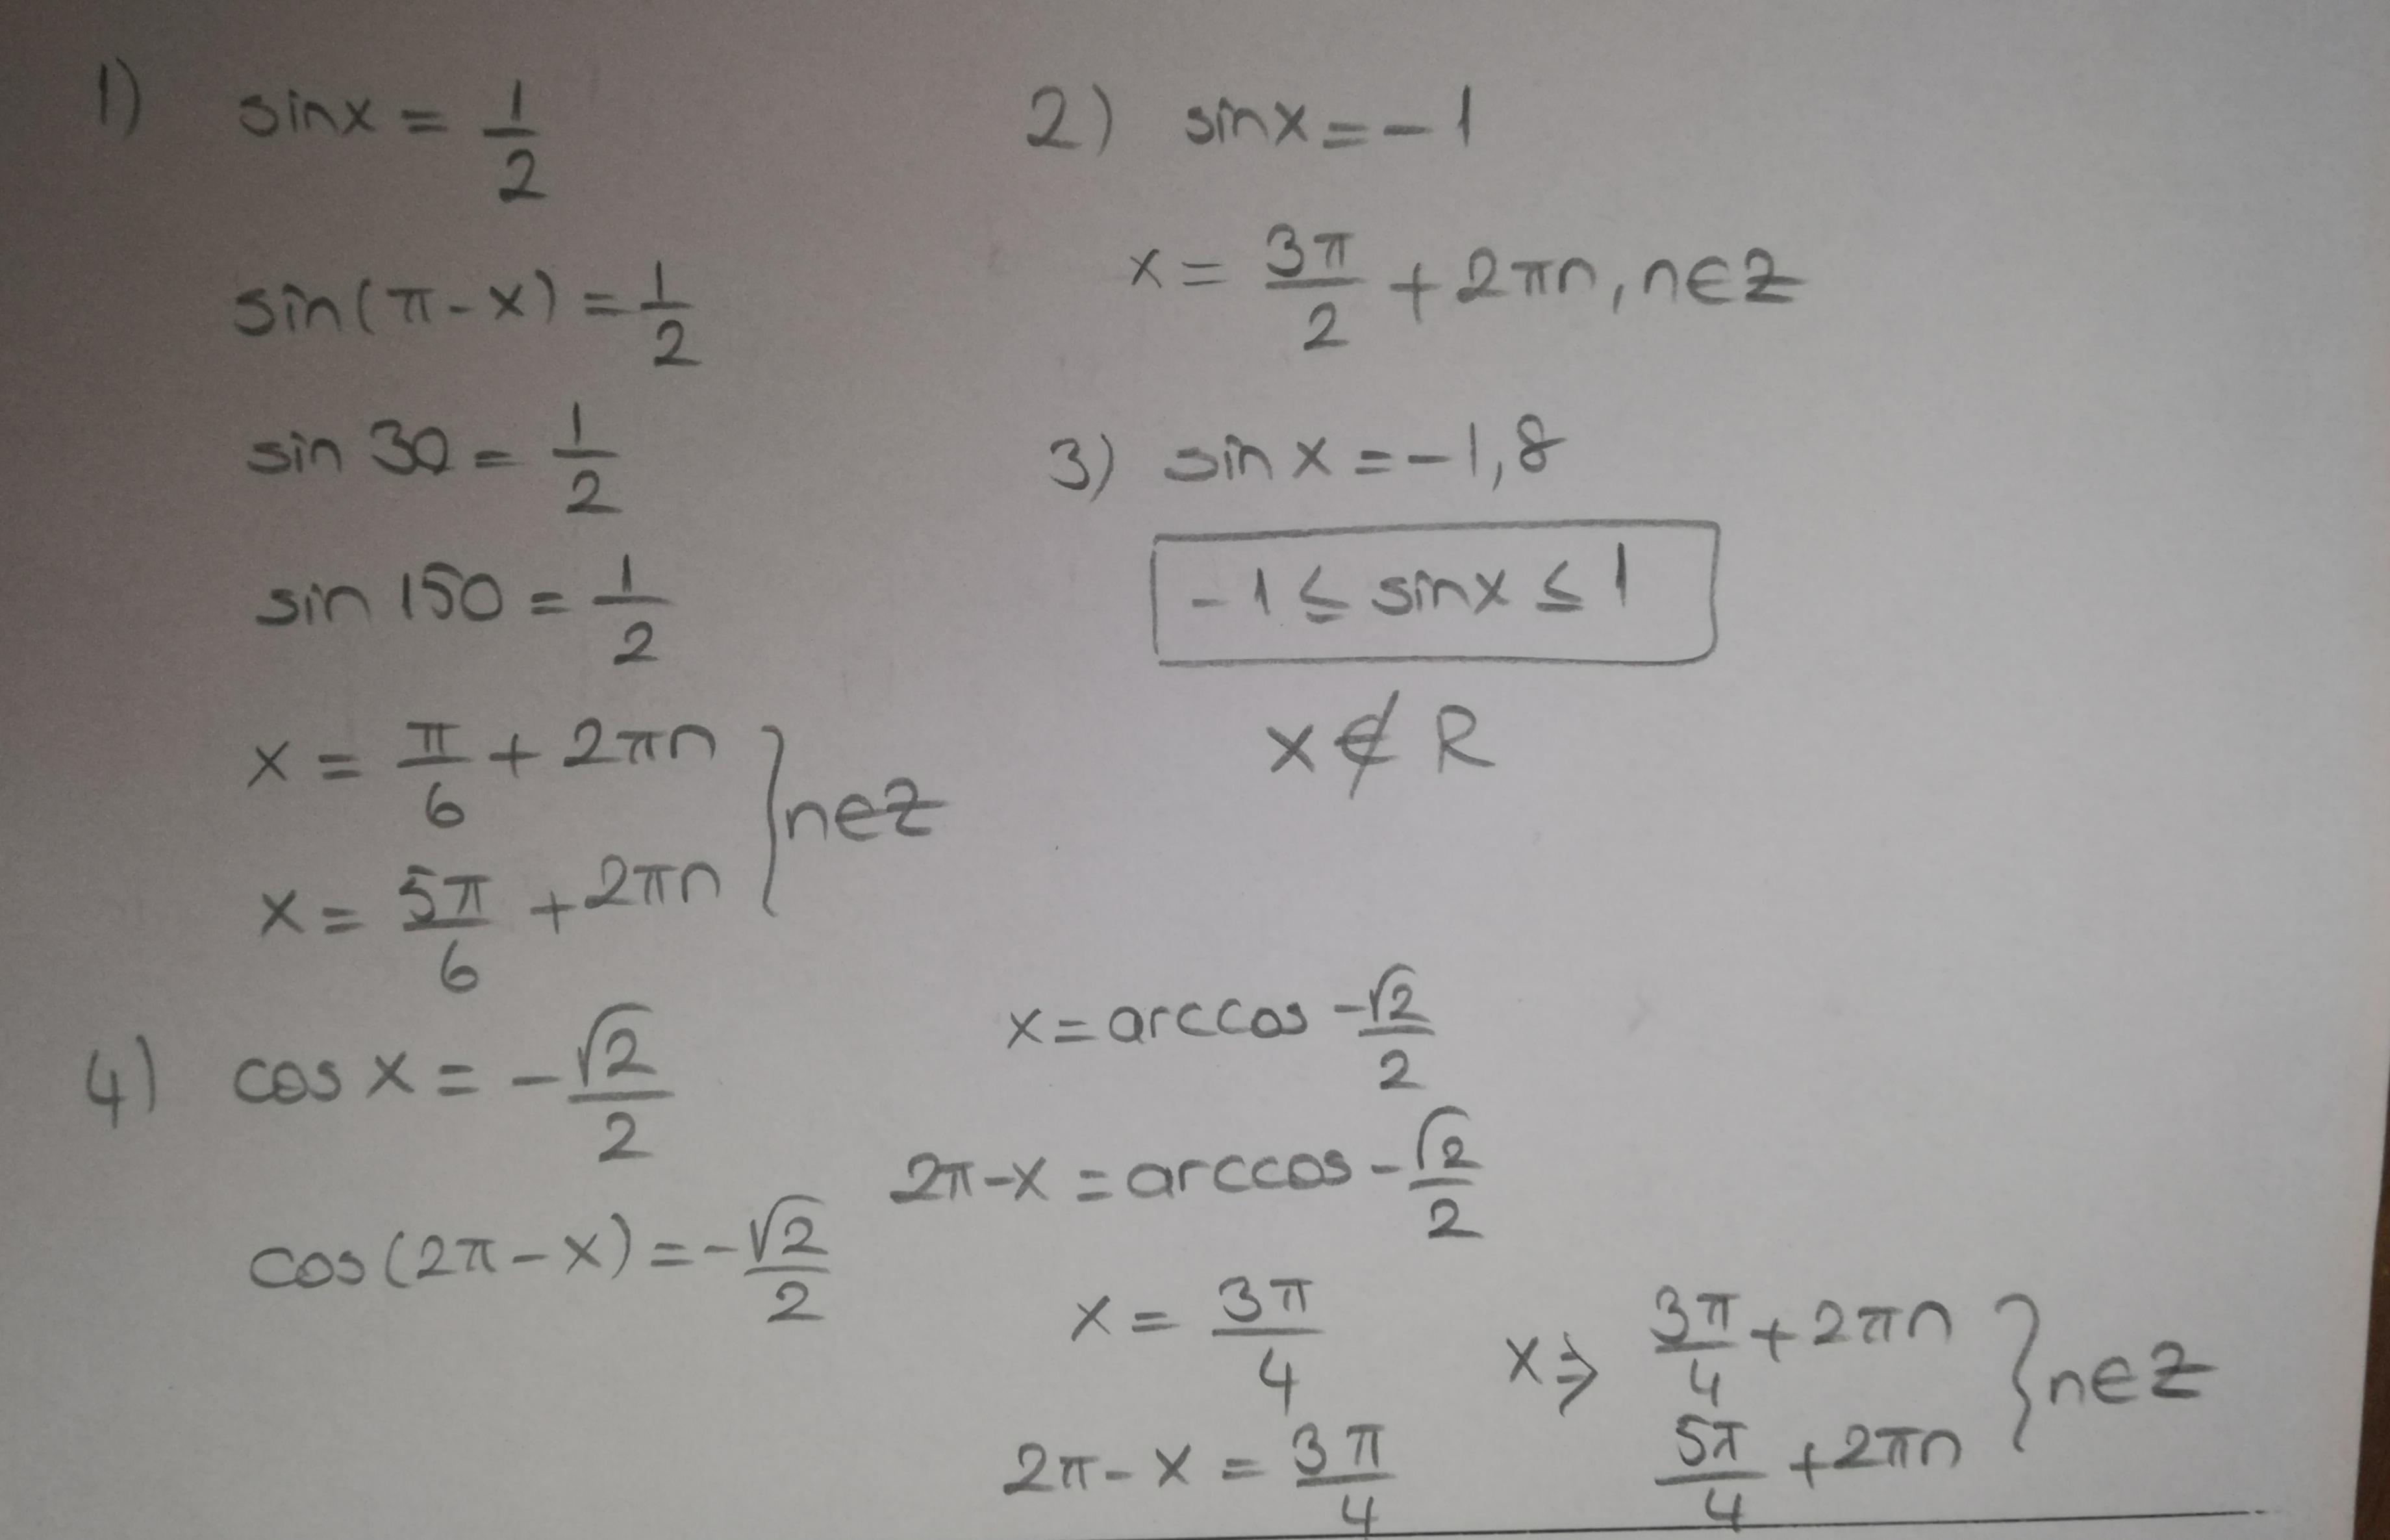 1) sinx = 1/2
sin(π-x) = 1/2
sin 30 = 1/2
sin 150 = 1/2
x = π/6 + 2πn
x = 5π/6 + 2πn } n∈Z
2) sinx = -1
x = 3π/2 + 2πn, n∈Z
3) sin x = -1,8
-1 ≤ sinx ≤ 1
x ∉ R
4) cos x = -√2/2
cos(2π-x) = -√2/2
x = arccos -√2/2
2π-x = arccos -√2/2
x = 3π/4
2π-x = 3π/4
x ⇒ 3π/4 + 2πn
5π/4 + 2πn } n∈Z